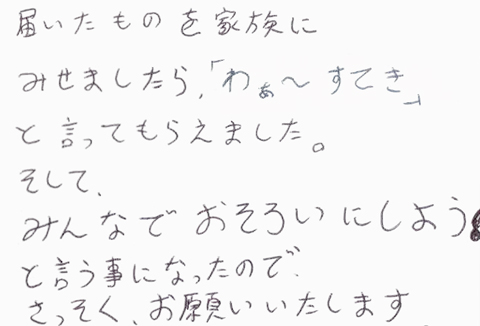 届いたものを家族に
みせましたら,「わぁ〜すてき」
と言ってもらえました。
そして、
みんなでおそろいにしよう
と言う事になったので、
さっそく、お願いいたします